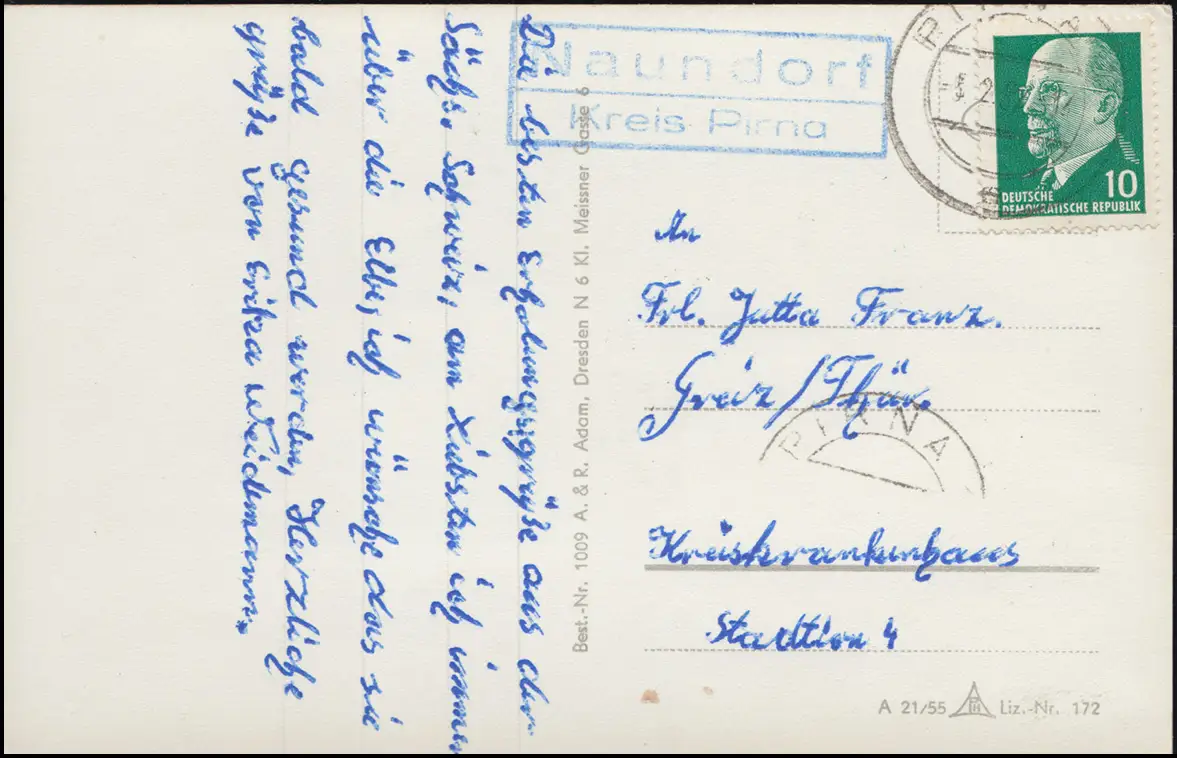 Die besten Erholungsgrüße aus der
Sächs. Schweiz, am Liebsten ich immer
über die Elbe, ich wünsche das sie
bald gesund werden, Herzliche
grüße von Erika Weidemann.
Naundorf
Kreis Pirna
PIRNA
10
DEUTSCHE
DEMOKRATISCHE REPUBLIK
An
Frl. Jutta Franz.
Greiz/Thür.
PIRNA
Kreiskrankenhaus
Stattion 4
Best.-Nr. 1009 A. & R. Adam, Dresden N 6 Kl. Meissner Gasse 6
A 21/55 Liz.-Nr. 172